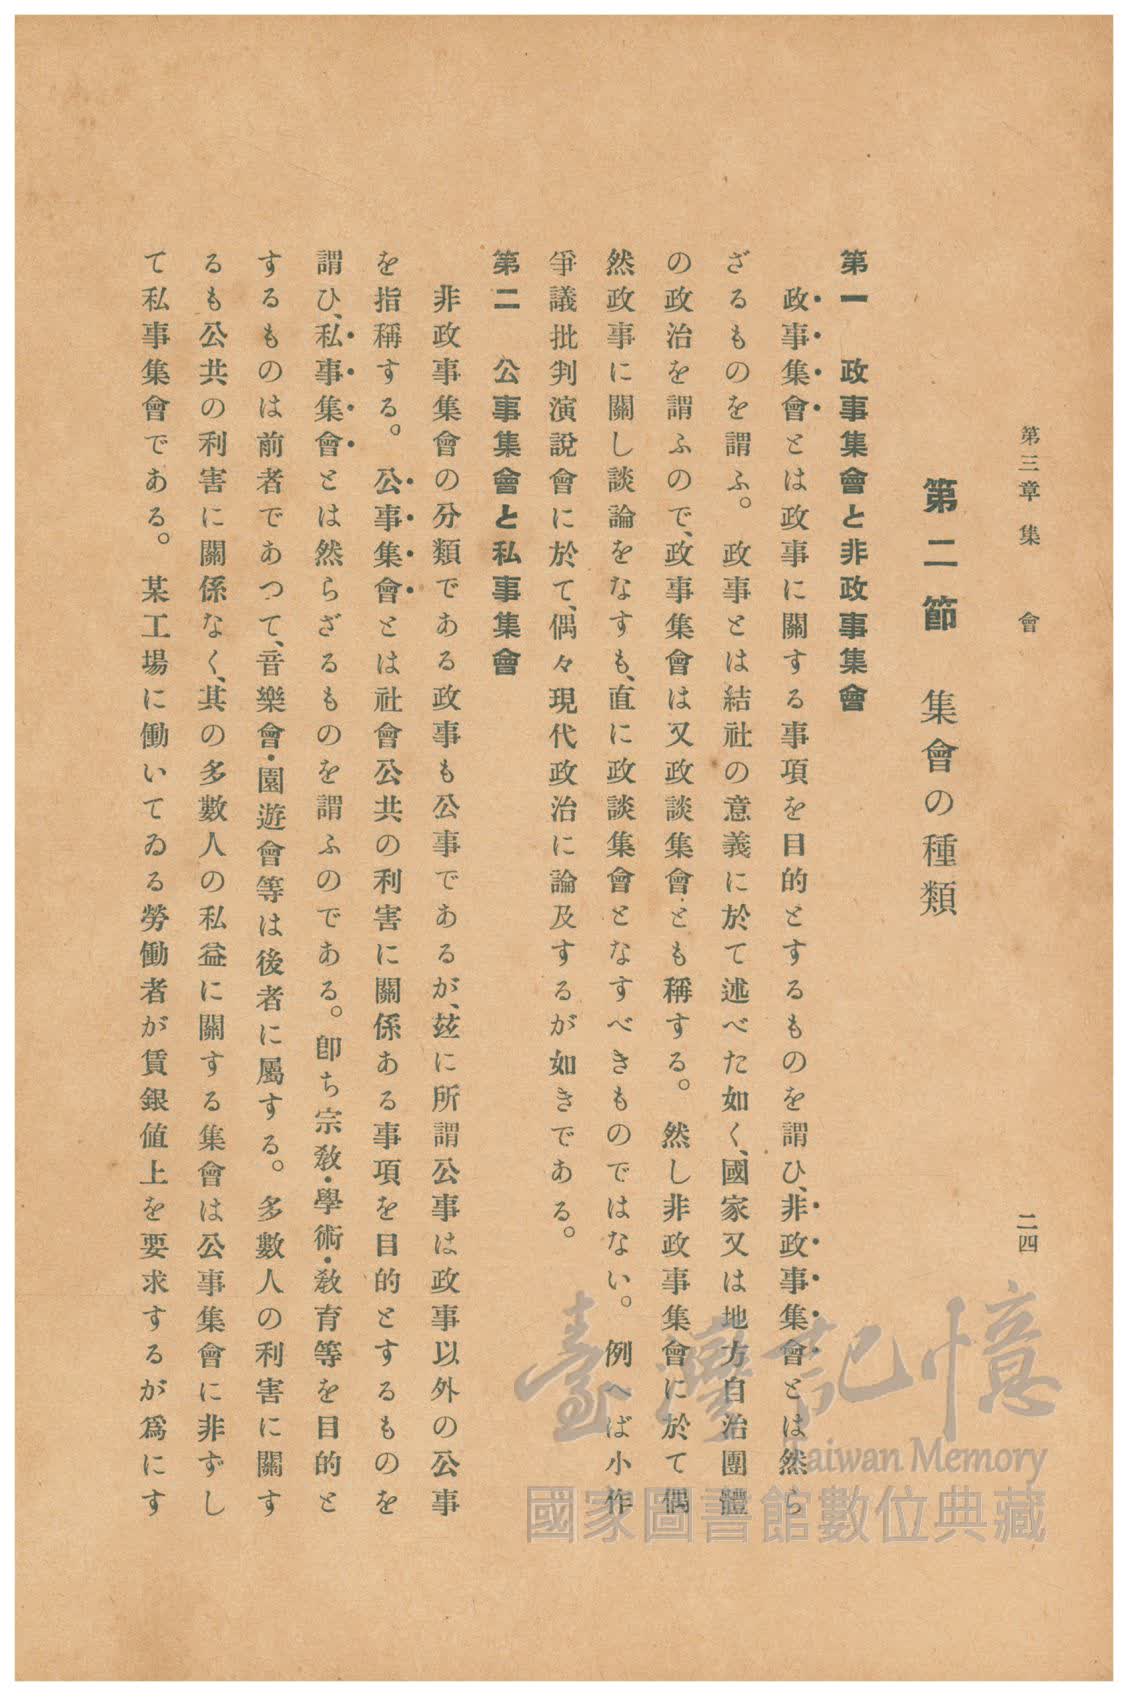 第三章 集會 二四
第二節 集會の種類
第一 政事集會と非政事集會
政事集會とは政事に關する事項を目的とするものを謂ひ、非政事集會とは然ら
ざるものを謂ふ。政事とは結社の意義に於て述べた如く、國家又は地方自治團體
の政治を謂ふので、政事集會は又政談集會とも稱する。然し非政事集會に於て偶
然政事に關し談論をなすも、直に政談集會となすべきものではない。例へば小作
爭議批判演說會に於て、偶々現代政治に論及するが如きである。
第二 公事集會と私事集會
非政事集會の分類である政事も公事であるが、玆に所謂公事は政事以外の公事
を指稱する。公事集會とは社會公共の利害に關係ある事項を目的とするものを
謂ひ、私事集會とは然らざるものを謂ふのである。卽ち宗敎・學術・敎育等を目的と
するものは前者であつて、音樂會・園遊會等は後者に屬する。多數人の利害に關す
るも公共の利害に關係なく、其の多數人の私益に關する集會は公事集會に非ずし
て私事集會である。某工場に働いてゐる勞働者が賃銀値上を要求するが爲にす
臺灣記憶
Taiwan Memory
國家圖書館數位典藏